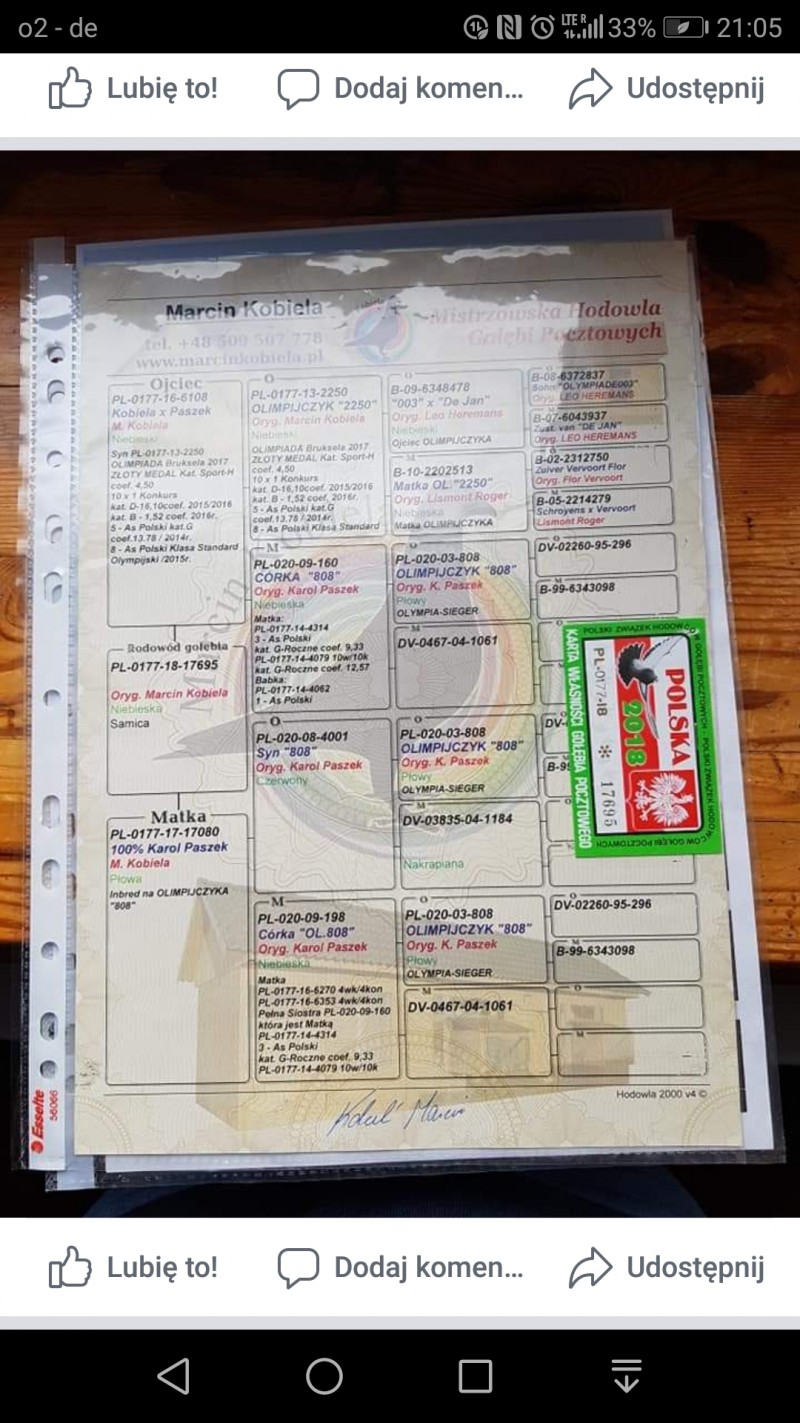 o2 - de
33%
21:05
Lubię to!
Dodaj komen...
Udostępnij
Marcin Kobiela
Mistrzowska Hodowla
Gołębi Pocztowych
tel. +48 509 507 778
www.marcinkobiela.pl
Ojciec
PL-0177-16-6108
Kobiela x Paszek
M. Kobiela
Niebieski
Syn PL-0177-13-2250
OLIMPIADA Bruksela 2017
ZŁOTY MEDAL Kat. Sport-H
coef. 4,50
10 x 1 Konkurs
kat. D-16,10coef. 2015/2016
kat. B - 1,52 coef. 2016r.
5 - As Polski kat.G
coef.13.78 / 2014r.
8 - As Polski Klasa Standard
Olympijski /2015r.
Rodowód gołębia
PL-0177-18-17695
Oryg. Marcin Kobiela
Niebieska
Samica
Matka
PL-0177-17-17080
100% Karol Paszek
M. Kobiela
Płowa
Inbred na OLIMPIJCZYKA
"808"
O
PL-0177-13-2250
OLIMPIJCZYK "2250"
Oryg. Marcin Kobiela
Niebieski
OLIMPIADA Bruksela 2017
ZŁOTY MEDAL Kat. Sport-H
coef. 4,50
10 x 1 Konkurs
kat. D-16,10coef. 2015/2016
kat. B - 1,52 coef. 2016r.
5 - As Polski kat.G
coef.13.78 / 2014r.
8 - As Polski Klasa Standard
M
PL-020-09-160
CÓRKA "808"
Oryg. Karol Paszek
Niebieska
Matka:
PL-0177-14-4314
3 - As Polski
kat. G-Roczne coef. 9,33
PL-0177-14-4079 10w/10k
kat. G-Roczne coef. 12,57
Babka:
PL-0177-14-4062
1 - As Polski
O
PL-020-08-4001
Syn "808"
Oryg. Karol Paszek
Czerwony
M
PL-020-09-198
Córka "OL.808"
Oryg. Karol Paszek
Niebieska
Matka
PL-0177-16-6270 4wk/4kon
PL-0177-16-6353 4wk/4kon
Pełna Siostra PL-020-09-160
która jest Matką
PL-0177-14-4314
3 - As Polski
kat. G-Roczne coef. 9,33
PL-0177-14-4079 10w/10k
O
B-09-6348478
"003" x "De Jan"
Oryg. Leo Heremans
Niebieski
Ojciec OLIMPIJCZYKA
M
B-10-2202513
Matka OL."2250"
Oryg. Lismont Roger
Niebieska
Matka OLIMPIJCZYKA
O
PL-020-03-808
OLIMPIJCZYK "808"
Oryg. K. Paszek
Płowy
OLYMPIA-SIEGER
M
DV-0467-04-1061
O
PL-020-03-808
OLIMPIJCZYK "808"
Oryg. K. Paszek
Płowy
OLYMPIA-SIEGER
M
DV-03835-04-1184
Nakrapiana
O
PL-020-03-808
OLIMPIJCZYK "808"
Oryg. K. Paszek
Płowy
OLYMPIA-SIEGER
M
DV-0467-04-1061
B-08-6372837
Sohn "OLYMPIADE003"
Oryg. LEO HEREMANS
B-07-6043937
Zust. van "DE JAN"
Oryg. LEO HEREMANS
B-02-2312750
Zuiver Vervoort Flor
Oryg. Flor Vervoort
B-05-2214279
Schroyens x Vervoort
Lismont Roger
DV-02260-95-296
B-99-6343098
DV-
B-99
O
DV-02260-95-296
M
B-99-6343098
O
M
POLSKI ZWIĄZEK HODOWCÓW GOŁĘBI POCZTOWYCH
KARTA WŁASNOŚCI GOŁĘBIA POCZTOWEGO
PL-0177-18 * 17695
2018
POLSKA
Hodowla 2000 v4 ©
Esselte
56066
Lubię to!
Dodaj komen...
Udostępnij